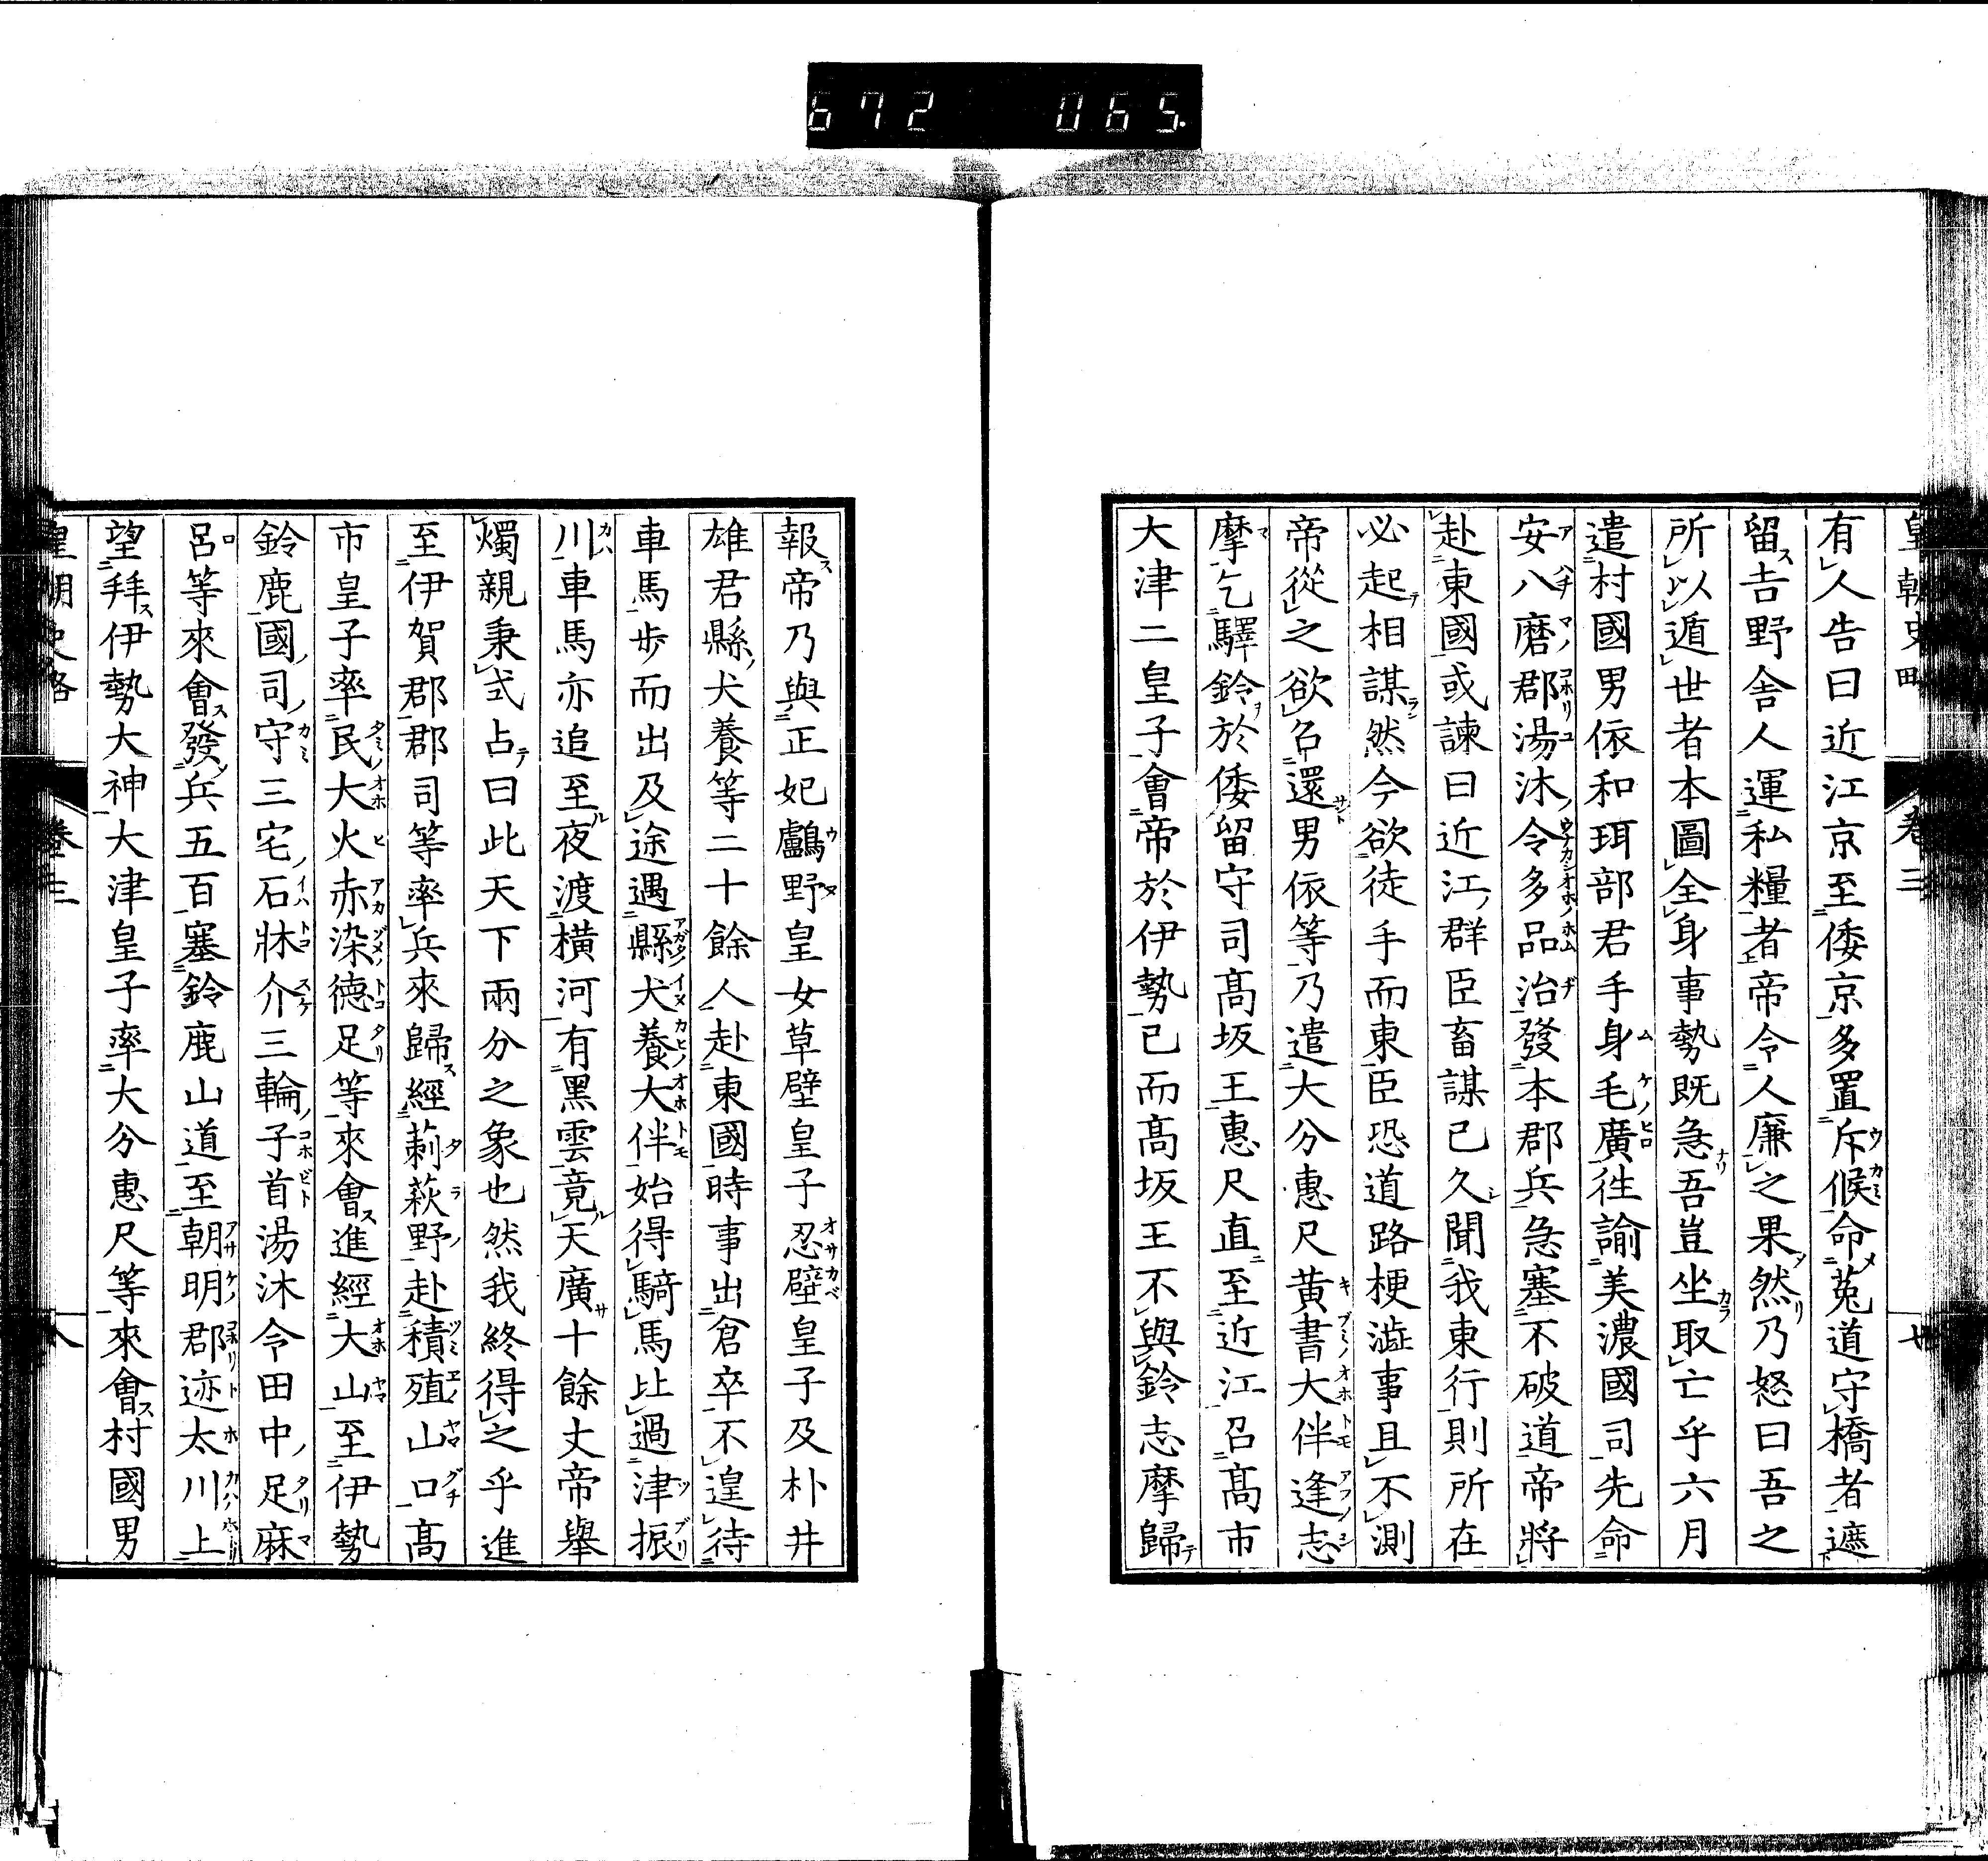 672 065.
皇朝史略 卷三 廿
有人告曰近江京至倭京多置斥候命菟道守橋者遮
留吉野舍人運私糧者帝令人廉之果然乃怒曰吾之
所以遁世者本圖全身事勢既急吾豈坐取亡乎六月
遣村國男依和珥部君手身毛廣往諭美濃國司先命
安八磨郡湯沐令多品治發本郡兵急塞不破道帝將
赴東國或諫曰近江群臣畜謀已久聞我東行則所在
必起相謀然今欲徒手而東臣恐道路梗澁事且不測
帝從之欲召還男依等乃遣大分惠尺黃書大伴逢志
摩乞驛鈴於倭留守司高坂王惠尺直至近江召高市
大津二皇子會帝於伊勢已而高坂王不與鈴志摩歸
報帝乃與正妃鸕野皇女草壁皇子忍壁皇子及朴井
雄君縣犬養等二十餘人赴東國時事出倉卒不遑待
車馬步而出及途遇縣犬養大伴始得騎馬比過津振
川車馬亦追至夜渡橫河有黑雲竟天廣十餘丈帝舉
燭親秉式占曰此天下兩分之象也然我終得之乎進
至伊賀郡郡司等率兵來歸經莿萩野赴積殖山口高
市皇子率民大火赤染德足等來會進經大山至伊勢
鈴鹿國司守三宅石牀介三輪子首湯沐令田中足麻
呂等來會發兵五百塞鈴鹿山道至朝明郡迹太川上
望拜伊勢大神大津皇子率大分惠尺等來會村國男
皇朝史略 卷三